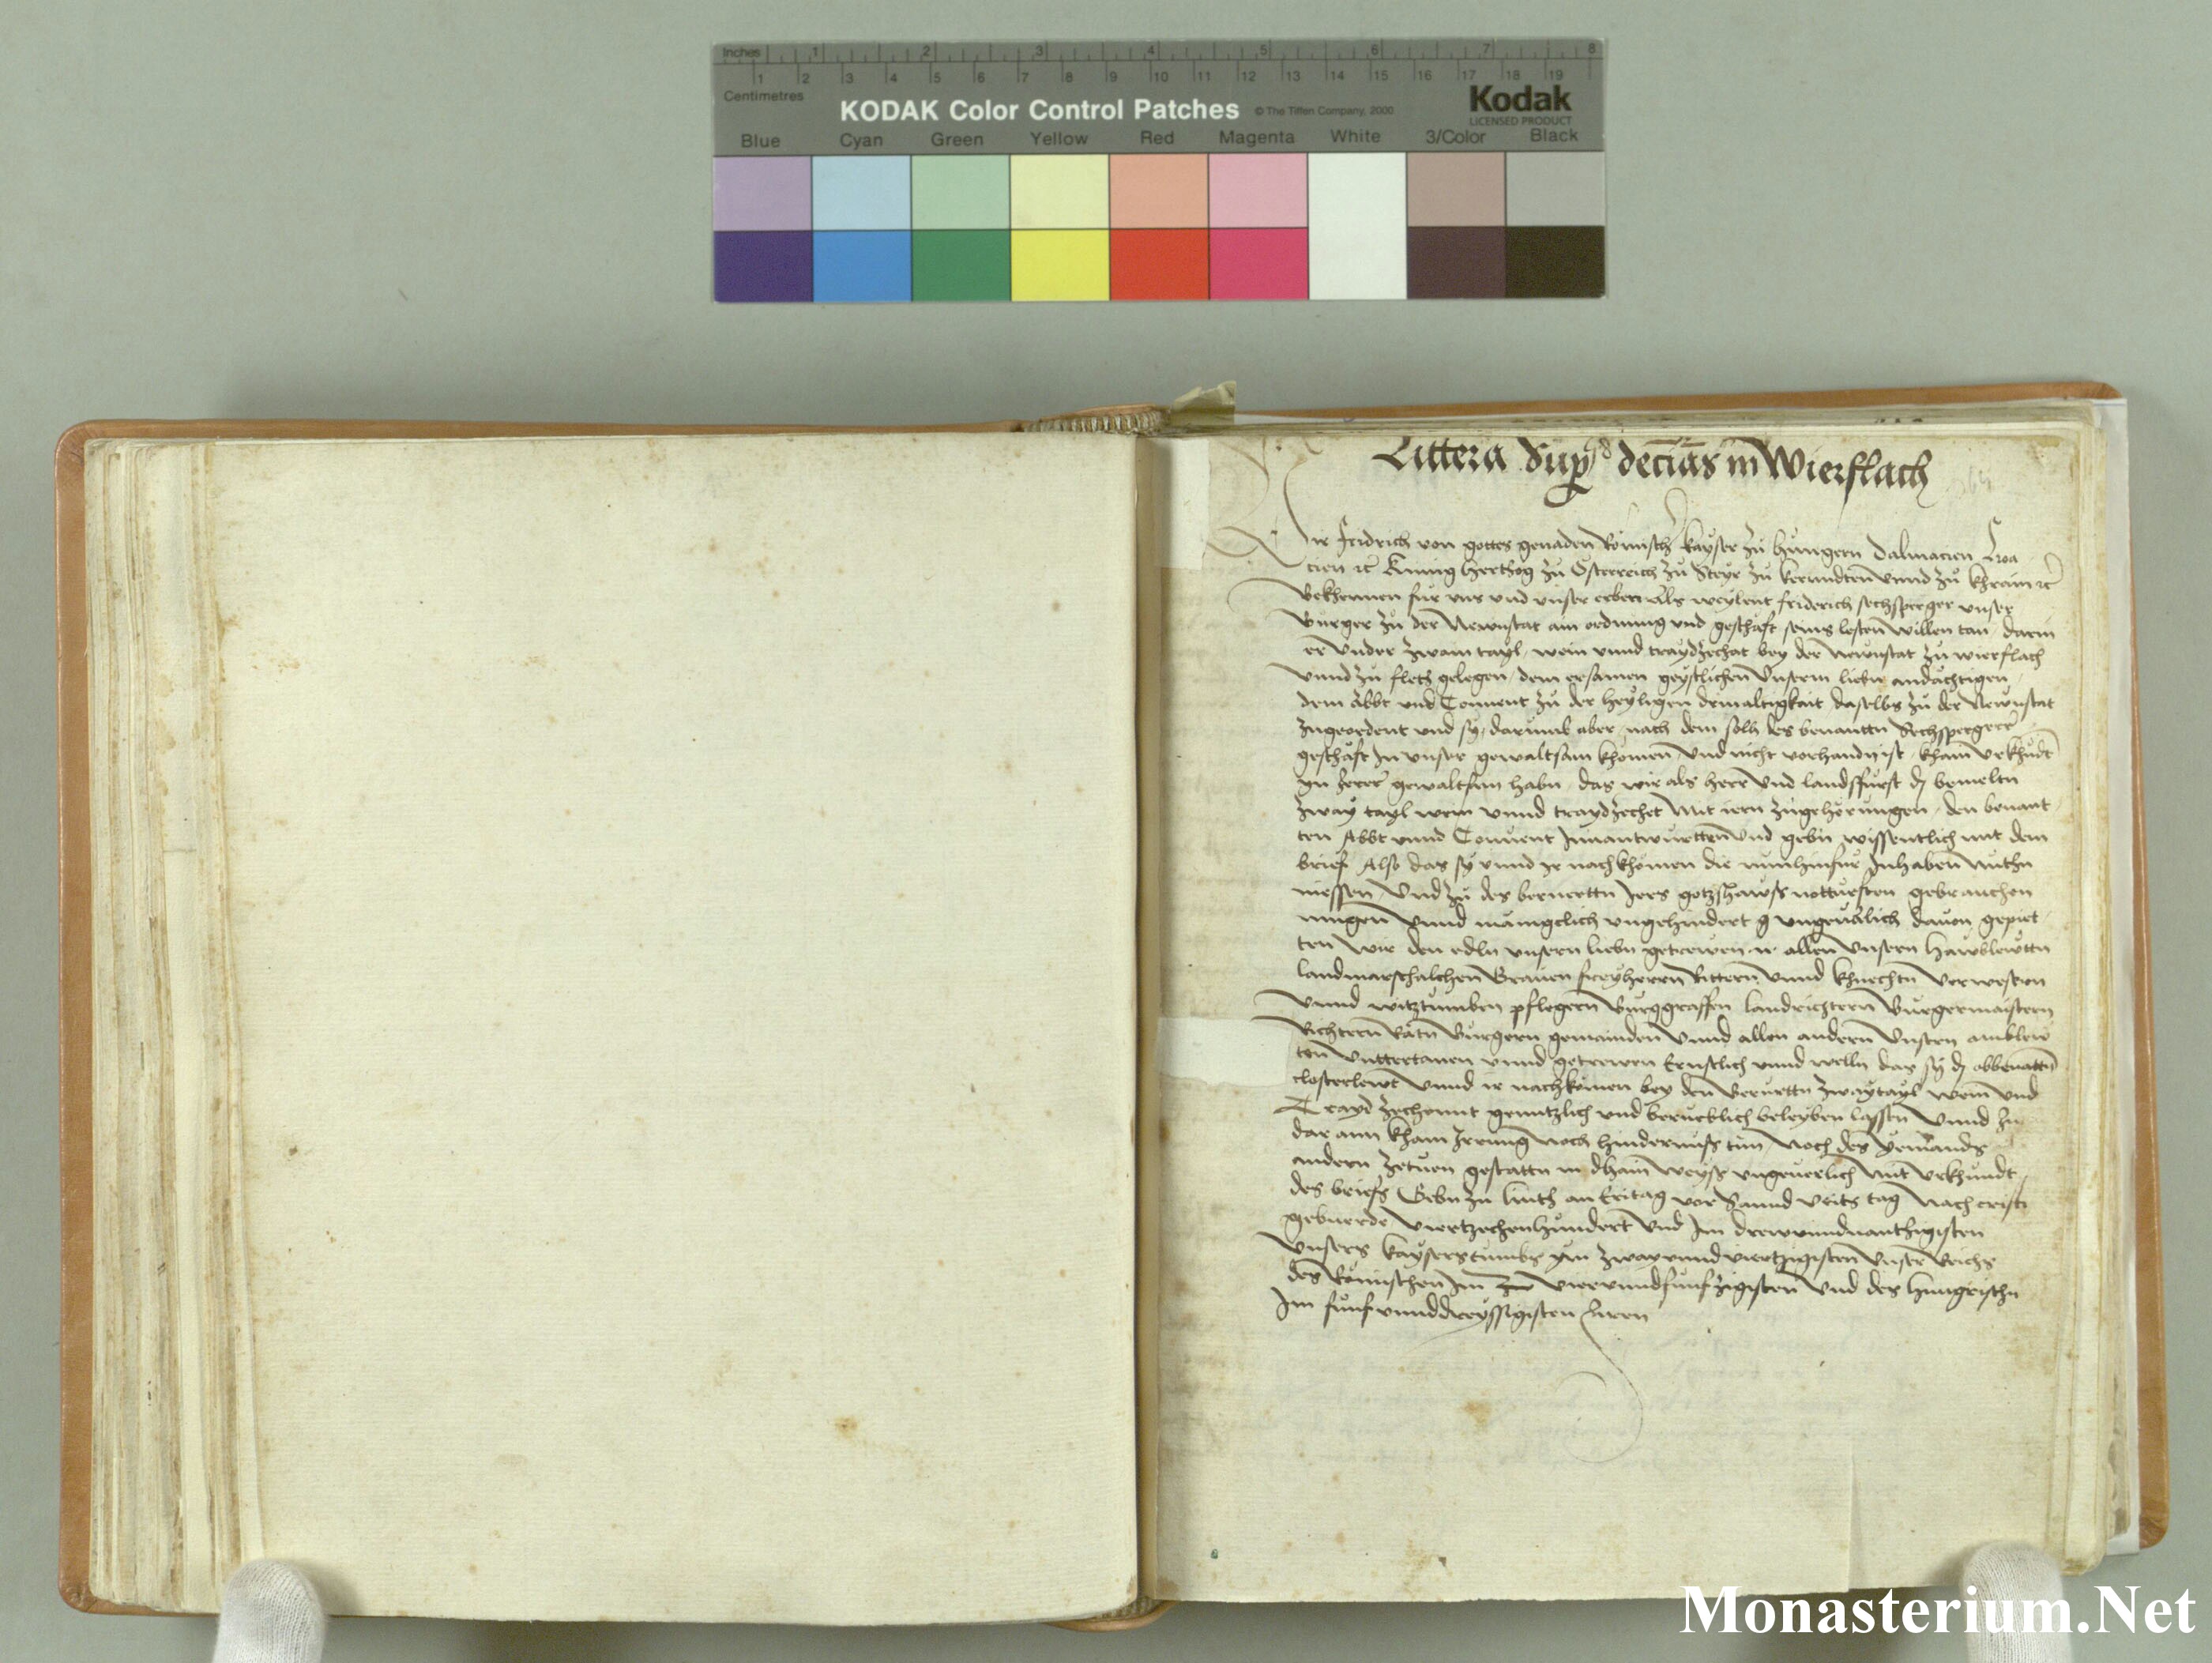 Inches 1 2 3 4 5 6 7 8
1 2 3 4 5 6 7 8 9 10 11 12 13 14 15 16 17 18 19
Centimetres
KODAK Color Control Patches © The Tiffen Company, 2000 Kodak
LICENSED PRODUCT
Blue Cyan Green Yellow Red Magenta White 3/Color Black
Littera Sup decias in Wierflach
Wir Fridrich von gottes genaden Römisch kayser zu hungern Dalmacien Croa
cien etc Kunig hertzog zu Osterreich zu Steyr zu kernndten vnnd zu khrain etc
Bekhennen fur vns vnd vnser erben Als weylent friderich sechsperger vnser
Burger zu der Newnstat ain ordnung vnd geschäft seins lesten willen tan darin
er vnder zwain tayl wein vnnd traydzechat bey der Newnstat zu wierflach
vnnd zu fletz gelegen dem ersamen geystlichen vnserm liebn andächtigen
dem Abbt vnd Conuent zu der heyligen driualtigkait daselbs zu der Newnstat
zugeordent vnd sy darumb aber nach dem solh des benanttn Sechsperger
geschäft In vnser gewaltsam khomen vnd nicht vorhandn ist kham vrkhudt
yn Irer gewaltsam habn das wir als herr vnd landsfurst die bemeltn
zway tayl wein vnnd traydzechet Mit iern zugehorungen den benant
ten Abbt vnnd Conuent Innantwurtten vnd gebn wissentlich mit dem
brief Also das sy vnnd ir nachkhomen die nunhinfur Inhaben Nuthn
niessen vnd zu des berurttn Irs gotzhawss notturften gebrauchen
mugen vnnd mänigclich vngehindert vngeuärlich dauon gepiet
ten wir den edln vnsern liebn getrewen N allen vnsern hawblewttn
landmarschalchen Grauen freyherrn Rittern vnnd khnechtn verwesern
vnnd witztumben pflegern Burggraffen landrichtern Burgermaistern
Richtern Rätn Burgern gemainden vnnd allen andern vnsern amblew
ten vnttertanen vnnd getrewen Ernstlich vnnd welln das sy die obbenattn
closterlewt vnnd ir nachkomen bey den berurttn zwaytayl wein vnd
Trayd zechennt genntzlich vnd beruetlich beleyben lassen vnnd In
dar ann kham Irrung noch hindernuss tun Noch des yemands
andern zetuen gestattn in dhain weyss vngeuerlich Mit vrkhundt
des briefs Gebn zu lintz an Eritag vor Sannd veits tag Nach cristi
gebuerde viertzechenhundert vnd Im drewvnndnantzigisten
vnsers kaysertumbs ym zwayvnnduiertzigisten vnser Reichs
des Römischen Im viervnndfunfzigisten vnd des hungrischn
Im funfvnnddreyssigisten Iaren
Monasterium.Net